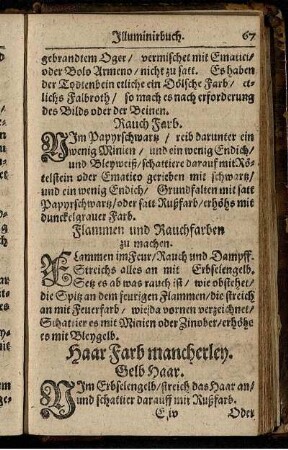 Illuminirbuch. 67
gebrandtem Oger / vermischet mit Ematici /
oder Bolo Armeno / nicht zu satt. Es haben
der Todtenbein etliche ein Dölsche Farb / et-
lichs Falbroth / so mach es nach erforderung
des Bilds oder der Beinen.
Rauch Farb.
NIm Papyrschwartz / reib darunter ein
wenig Minien / und ein wenig Endich /
und Bleyweiß / schattiere darauf mit Rö-
telstein oder Ematico gerieben mit schwartz /
und ein wenig Endich / Grundfalten mit satt
Papyrschwartz / oder satt Rußfarb / erhöhs mit
dunckelgrauer Farb.
Flammen und Rauchfarben
zu machen.
FLammen im Feur / Rauch und Dampff.
Streichs alles an mit Erbselengelb.
Setz es ab was rauch ist / wie obstehet /
die Spitz an dem feurigen Flammen / die streich
an mit Feuerfarb / wie da vornen verzeichnet /
Schattier es mit Minien oder Zinober / erhöhe
es mit Bleygelb.
Haar Farb mancherley.
Gelb Haar.
NIm Erbselengelb / streich das Haar an /
und schattier darauff mit Rußfarb.
E iv Oder